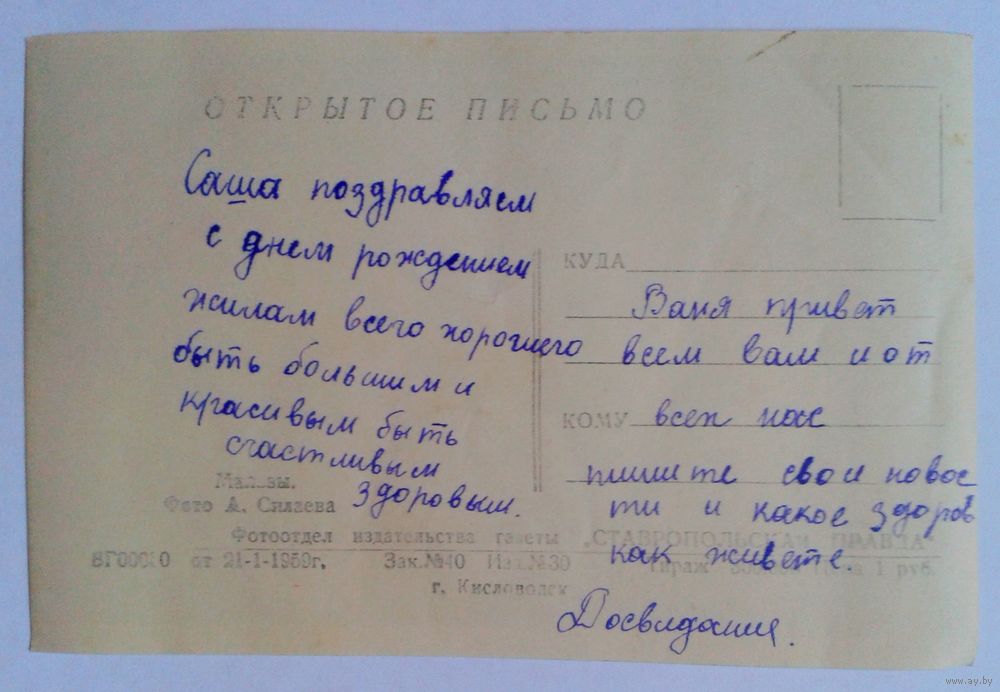 ОТКРЫТОЕ ПИСЬМО
Саша поздравляем
с днем рождением
жилам всего хорошего
быть большим и
красивым быть
счастливым
здоровым.
КУДА
Ваня привет
всем вам и от
КОМУ всех нас
пишите свои новос
ти и какое здоров
как живете.
Досвидания.
Фото А. Силаева
Фотоотдел издательства газеты „СТАВРОПОЛЬСКАЯ ПРАВДА"
от 21-1-1959г. Зак.№40 Изд.№30 Тираж Цена 1 руб.
г. Кисловодск
www.ay.by